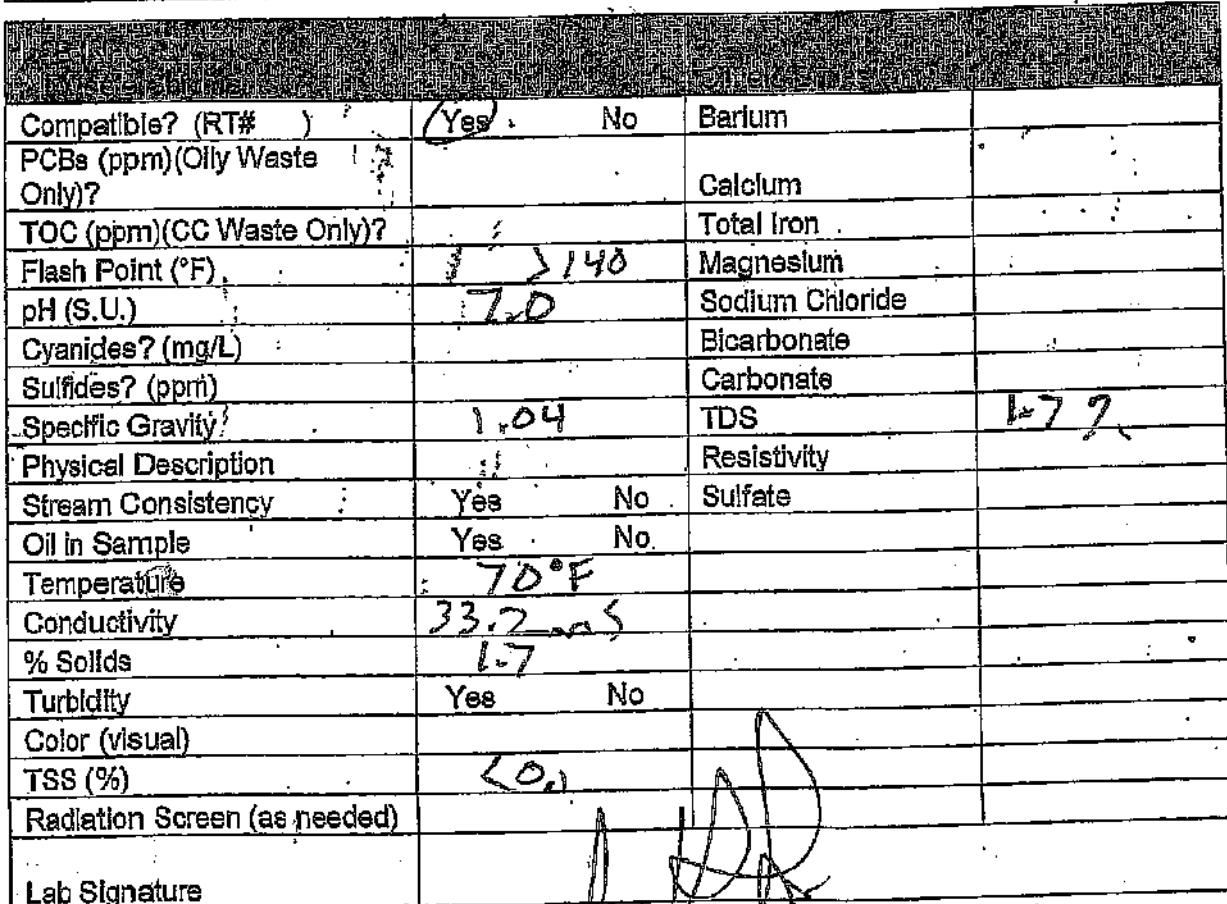 Compatible? (RT# ) Yes No Barium
PCBs (ppm)(Oily Waste
Only)? Calcium
TOC (ppm)(CC Waste Only)? Total Iron
Flash Point (°F) >140 Magnesium
pH (S.U.) 7.0 Sodium Chloride
Cyanides? (mg/L) Bicarbonate
Sulfides? (ppm) Carbonate
Specific Gravity 1.04 TDS 1.7 %
Physical Description Resistivity
Stream Consistency Yes No Sulfate
Oil in Sample Yes No
Temperature 70°F
Conductivity 33.2 mS
% Solids 1.7
Turbidity Yes No
Color (visual)
TSS (%) <0.1
Radiation Screen (as needed)
Lab Signature